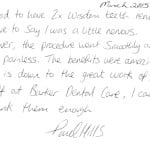 March 2015
had to have 2x Wisdom teeth
have to say I was a little nervous.
the procedure went smoothly
painless. The benefits were
is down to the great work of
at Burker Dental Care, I
thank them enough
Paul Mills